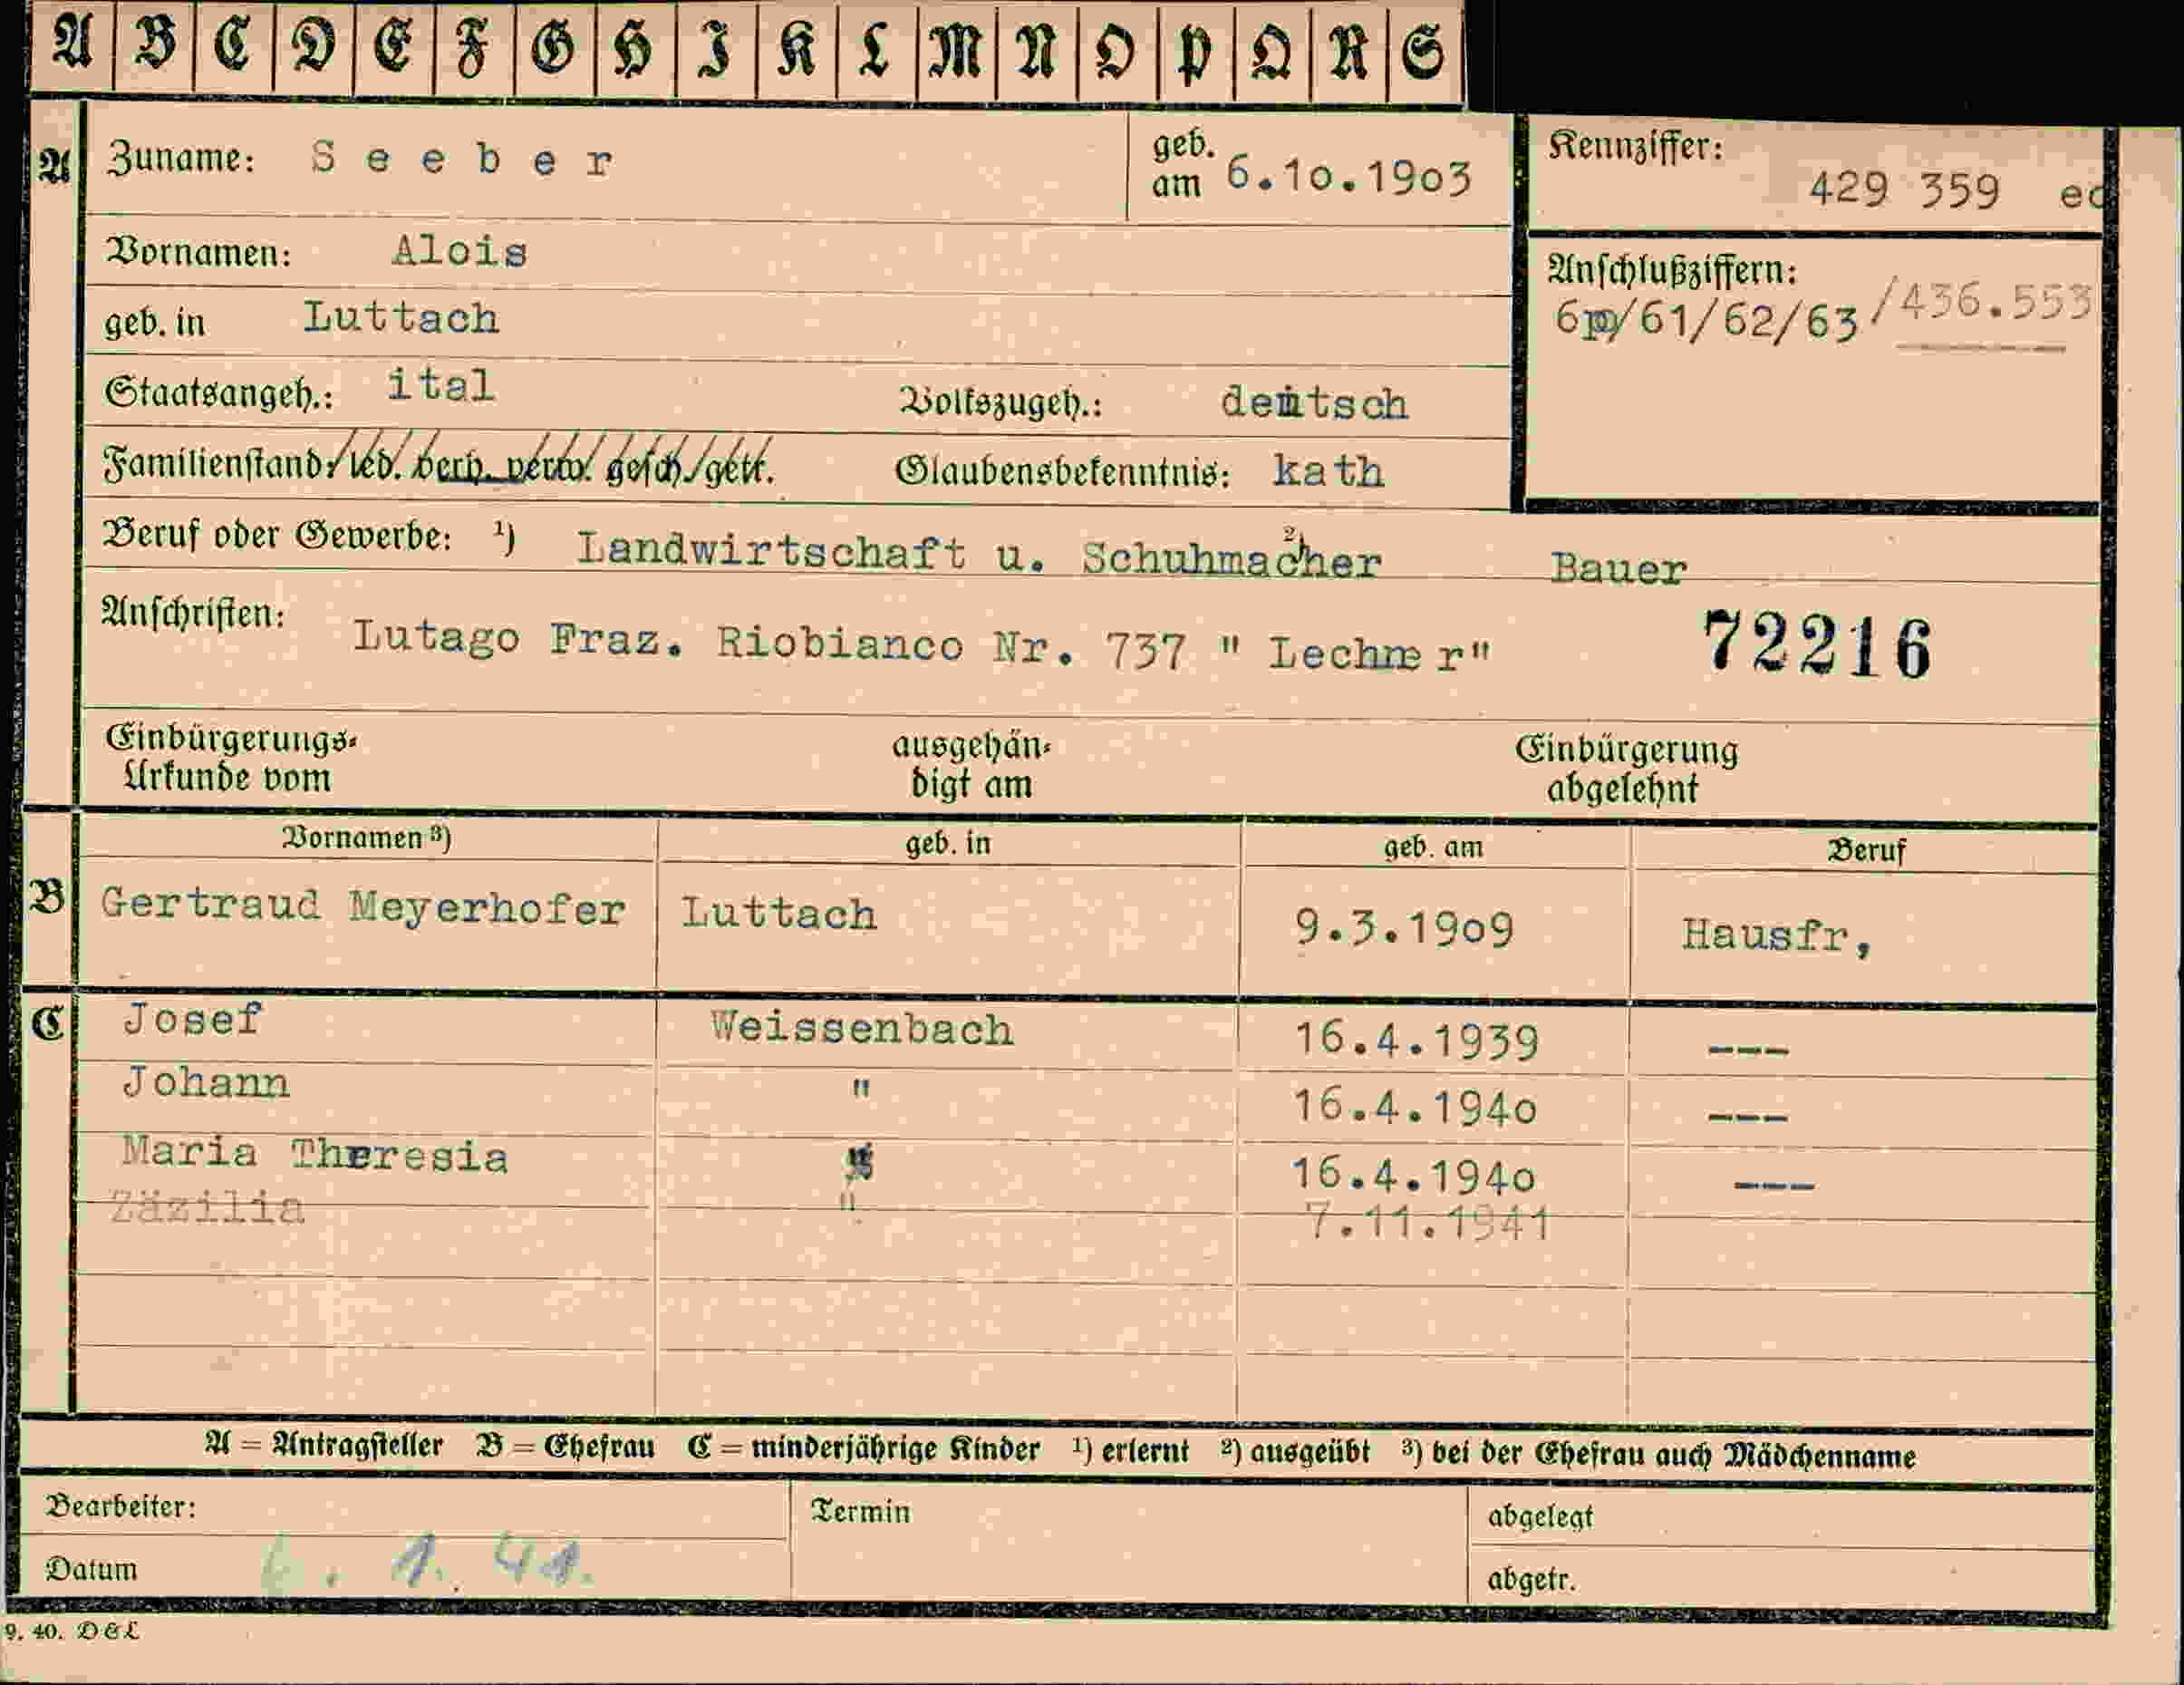 A B C D E F G H I K L M N O P Q R S
A Zuname: Seeber geb. am 6.10.1903 Kennziffer: 429 359
Vornamen: Alois
geb. in Luttach Anschlußziffern: /61/62/63/436.553
Staatsangeh.: ital Volkszugeh.: deutsch
Familienstand: led. verh. verw. gesch. getr. Glaubensbekenntnis: kath
Beruf oder Gewerbe: ¹) Landwirtschaft u. Schuhmacher ²) Bauer
Anschriften: Lutago Fraz. Riobianco Nr. 737 " Lechner" 72216
Einbürgerungs- ausgehän- Einbürgerung
Urkunde vom digt am abgelehnt
Vornamen ³) geb. in geb. am Beruf
B Gertraud Meyerhofer Luttach 9.3.1909 Hausfr,
C Josef Weissenbach 16.4.1939 ---
Johann " 16.4.1940 ---
Maria Theresia " 16.4.1940 ---
Zäzilia " 7.11.1941
A = Antragsteller B = Ehefrau C = minderjährige Kinder ¹) erlernt ²) ausgeübt ³) bei der Ehefrau auch Mädchenname
Bearbeiter: Termin abgelegt
Datum 6. 1. 41. abgetr.
9. 40. D & L